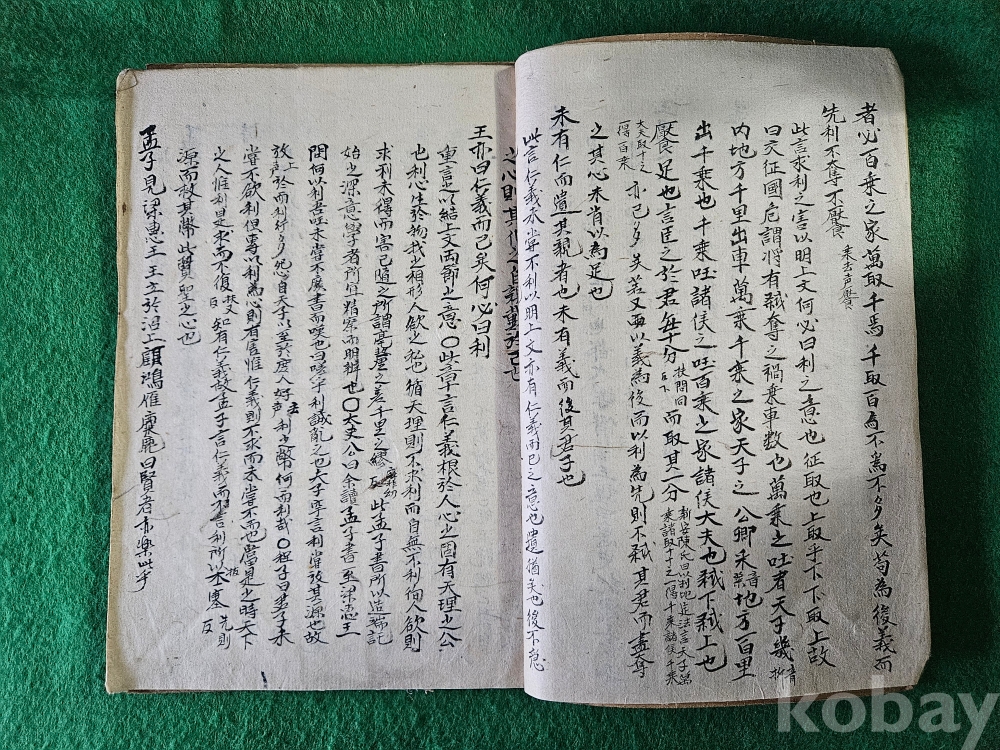 者必百乘之家萬取千焉千取百焉不爲不多矣苟爲後義而
先利不奪不饜 乘去声饜
此言求利之害以明上文何必曰利之意也征取也上取乎下下取上故
曰交征國危謂將有弑奪之禍乘車數也萬乘之國者天子畿
內地方千里出車萬乘千乘之家天子之公卿采 音菜 地方百里
出千乘也千乘國諸侯之國百乘之家諸侯大夫也弑下弑上也
饜足也言臣之於君每十分 而取其一分
大夫取十之
一得百乘 亦已多矣若又以義爲後而以利爲先則不弑其君而盡奪
之其心未肯以爲足也
未有仁而遺其親者也未有義而後其君子也
此言仁義未嘗不利以明上文亦有仁義而已之意也遺猶矣也後不急
王亦曰仁義而已矣何必曰利
重言之以結上文兩節之意〇此章言仁義根於人心之固有天理之公
也利心生於物我之相形人欲之私也循天理則不求利而自無不利徇人欲則
求利未得而害已隨之所謂毫釐之差千里之繆 此孟子書所以造端託
始之深意學者所宜精察而明辨也〇太史公曰余讀孟子書至梁惠王
問何以利吾國未嘗不廢書而嘆也曰嗟乎利誠亂之也夫子罕言利嘗放其源也故
放 上声 於而利行多怨自天子以至於庶人好 去声 利之弊何而利哉〇程子曰君子未
嘗不欲利但專以利爲心則有害惟仁義則不求而未嘗不而也當是之時天下
之人惟利是求而不復 知有仁義故孟子言仁義而不言利所以
源而救其弊此賢聖之心也
孟子見梁惠王王立於沼上顧鴻雁麋鹿曰賢者亦樂此乎